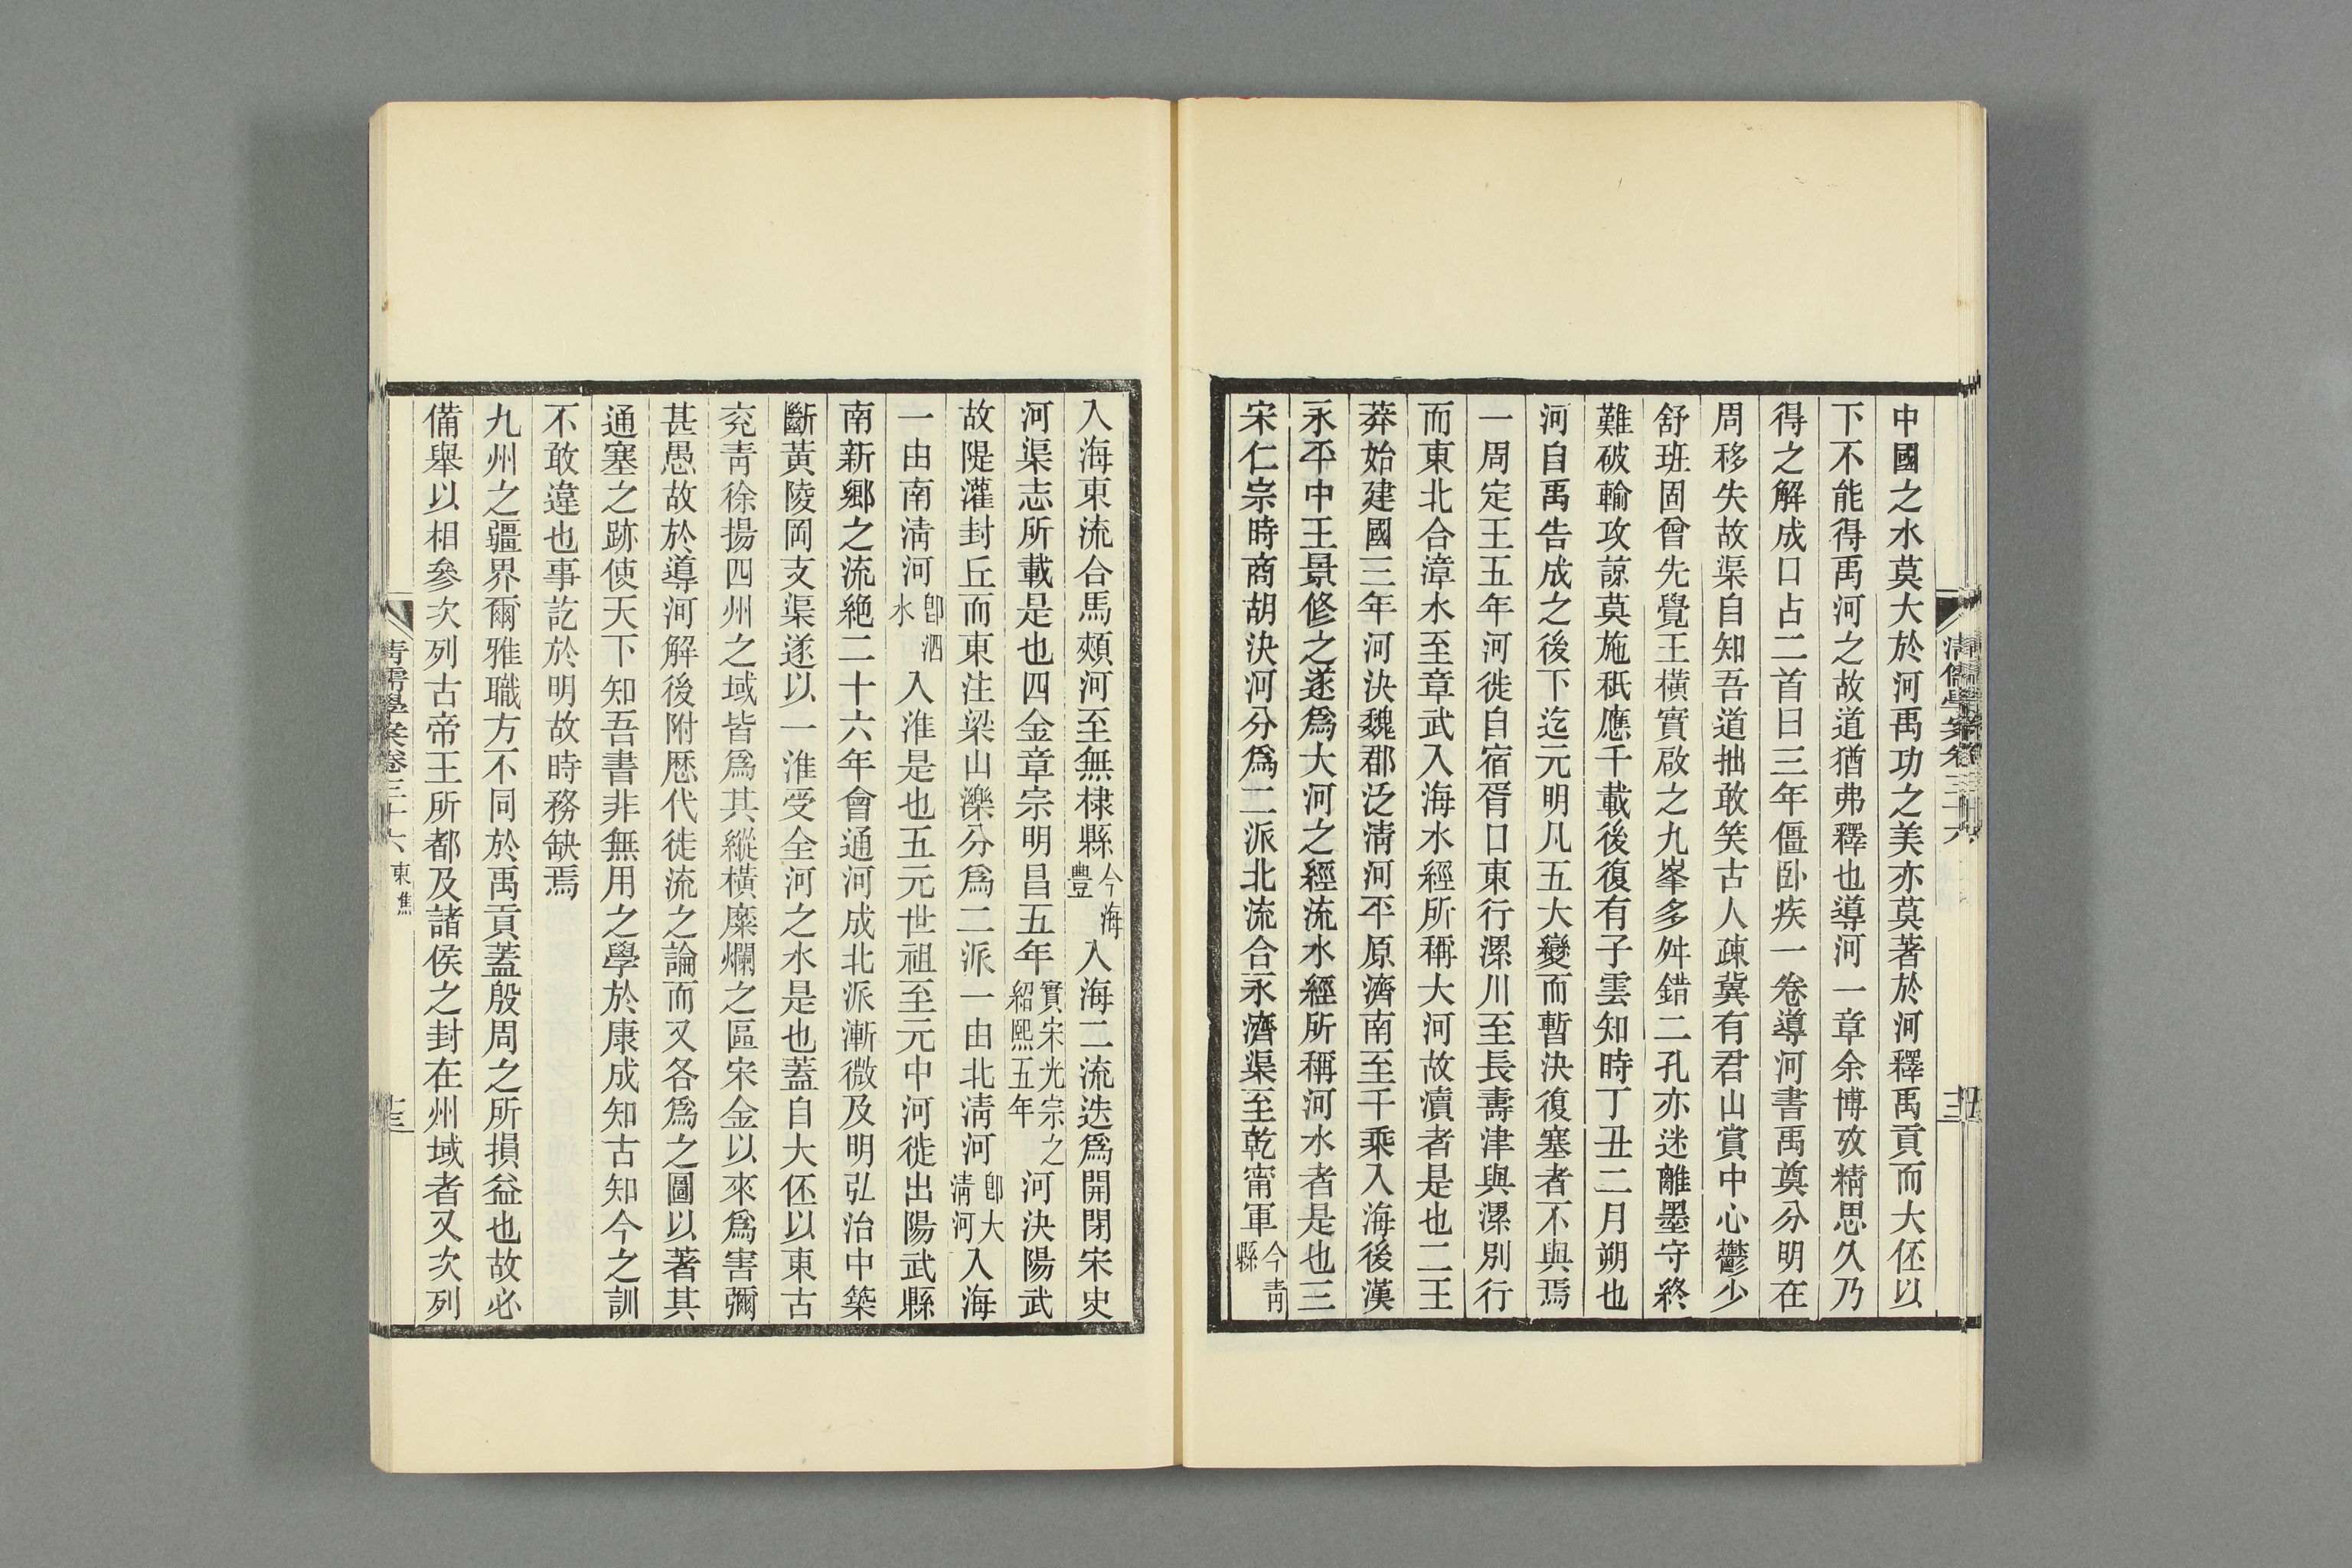 中國之水莫大於河禹功之美亦莫著於河釋禹貢而大伾以
下不能得禹河之故道猶弗釋也導河一章余博攷精思久乃
得之解成口占二首曰三年僵臥疾一卷導河書禹奠分明在
周移失故渠自知吾道拙敢笑古人疎冀有君山賞中心鬱少
舒班固曾先覺王橫實啟之九峯多舛錯二孔亦迷離墨守終
難破輸攻諒莫施秖應千載後復有子雲知時丁丑二月朔也
河自禹告成之後下迄元明凡五大變而暫決復塞者不與焉
一周定王五年河徙自宿胥口東行漯川至長壽津與漯別行
而東北合漳水至章武入海水經所稱大河故瀆者是也二王
莽始建國三年河決魏郡泛淸河平原濟南至千乘入海後漢
永平中王景修之遂爲大河之經流水經所稱河水者是也三
宋仁宗時商胡決河分爲二派北流合永濟渠至乾甯軍今靑縣
入海東流合馬頰河至無棣縣今海豐入海二流迭爲開閉宋史
河渠志所載是也四金章宗明昌五年實宋光宗之紹熙五年河決陽武
故隄灌封丘而東注梁山濼分爲二派一由北淸河卽大淸河入海
一由南淸河卽泗水入淮是也五元世祖至元中河徙出陽武縣
南新鄉之流絶二十六年會通河成北派漸微及明弘治中築
斷黃陵岡支渠遂以一淮受全河之水是也蓋自大伾以東古
兗靑徐揚四州之域皆爲其縱橫糜爛之區宋金以來爲害彌
甚愚故於導河解後附歷代徙流之論而又各爲之圖以著其
通塞之跡使天下知吾書非無用之學於康成知古知今之訓
不敢違也事訖於明故時務缺焉
九州之疆界爾雅職方不同於禹貢蓋殷周之所損益也故必
備舉以相參次列古帝王所都及諸侯之封在州域者又次列
淸儒學案卷三十六 東樵
十三